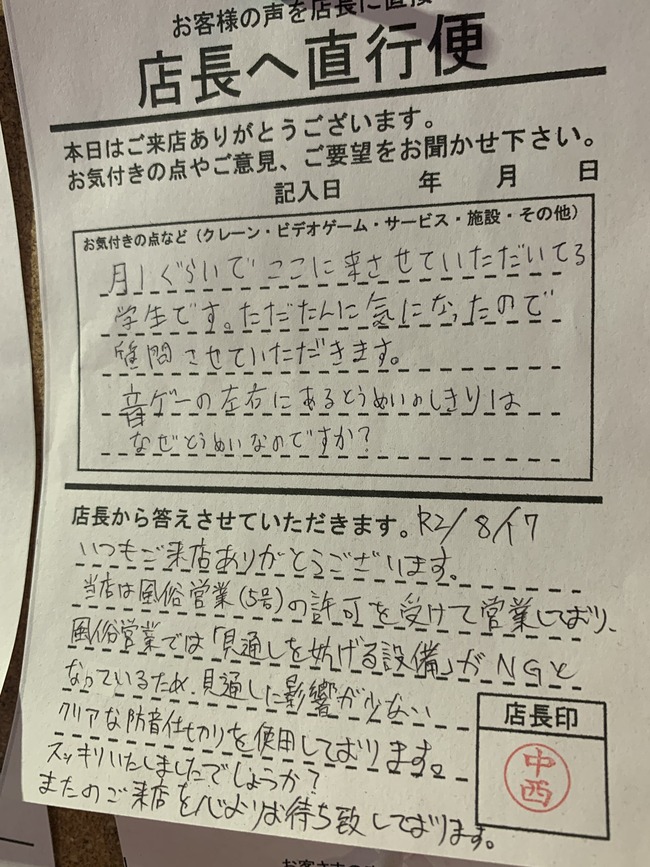 お客様の声を店長に直接
店長へ直行便
本日はご来店ありがとうございます。
お気付きの点やご意見、ご要望をお聞かせ下さい。
記入日 年 月 日
お気付きの点など（クレーン・ビデオゲーム・サービス・施設・その他）
月1ぐらいでここに来させていただいてる
学生です。ただたんに気になったので
質問させていただきます。
音ゲーの左右にあるとうめいのしきりは
なぜとうめいなのですか?
店長から答えさせていただきます。R2/8/17
いつもご来店ありがとうございます。
当店は風俗営業(5号)の許可を受けて営業しており、
風俗営業では「見通しを妨げる設備」がNGと
なっているため、見通しに影響が少ない
クリアな防音仕切りを使用しております。
スッキリいたしましたでしょうか?
またのご来店を心よりお待ち致しております。
店長印
中西